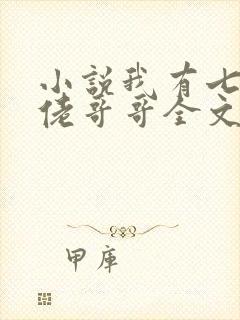 小說我有七
佬哥哥全文
甲庫